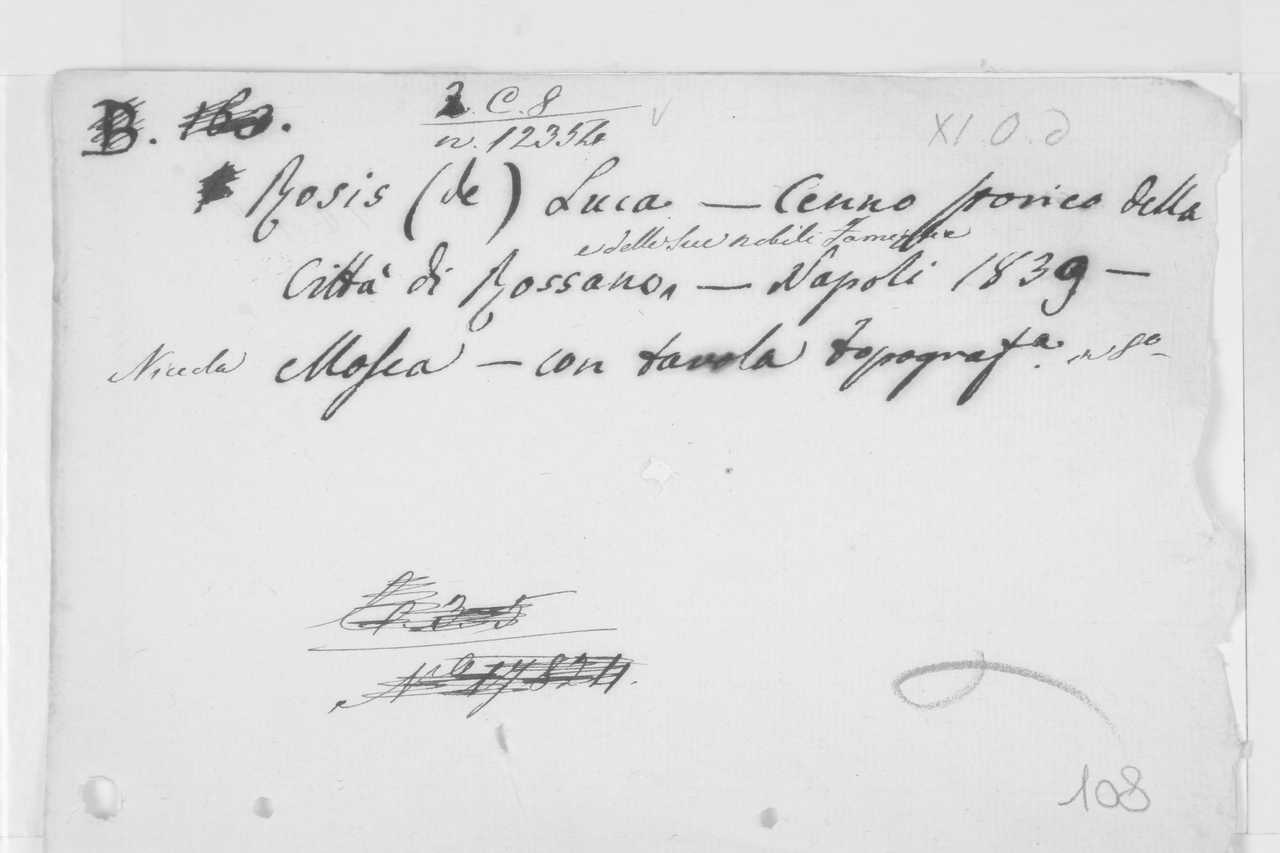 B. 163. 2. C. 8
n. 12354
XI. O. d
Rosis (de) Luca — Cenno storico della
e delle sue nobili famiglie
Città di Rossano, — Napoli 1839 —
Nicola Mosca — con tavola topograf.a in 8o
C. 3-5
No 17824.
108